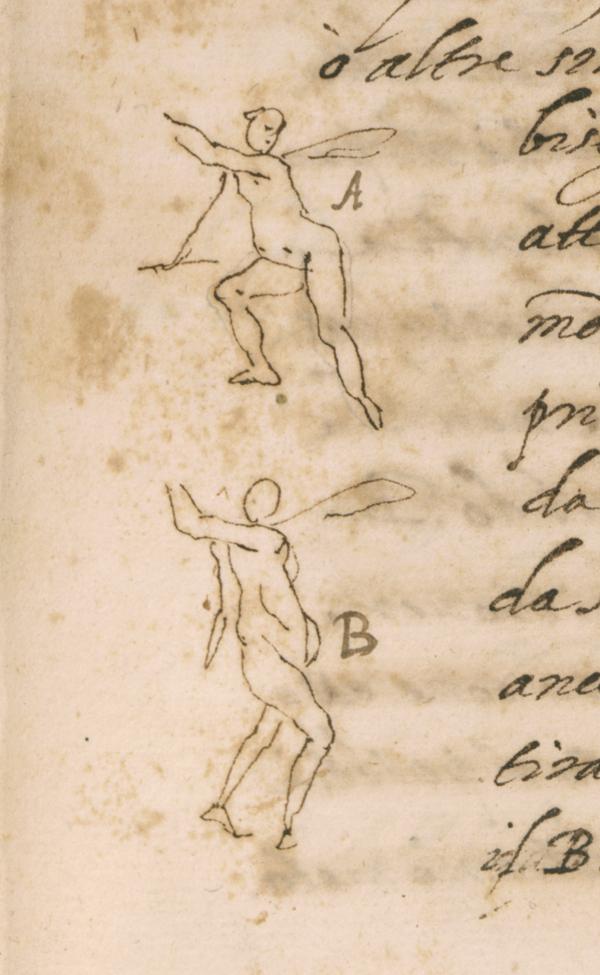 ò altre
A
bis
att
mo
pri
da
B
da s
anc
tira
il B.